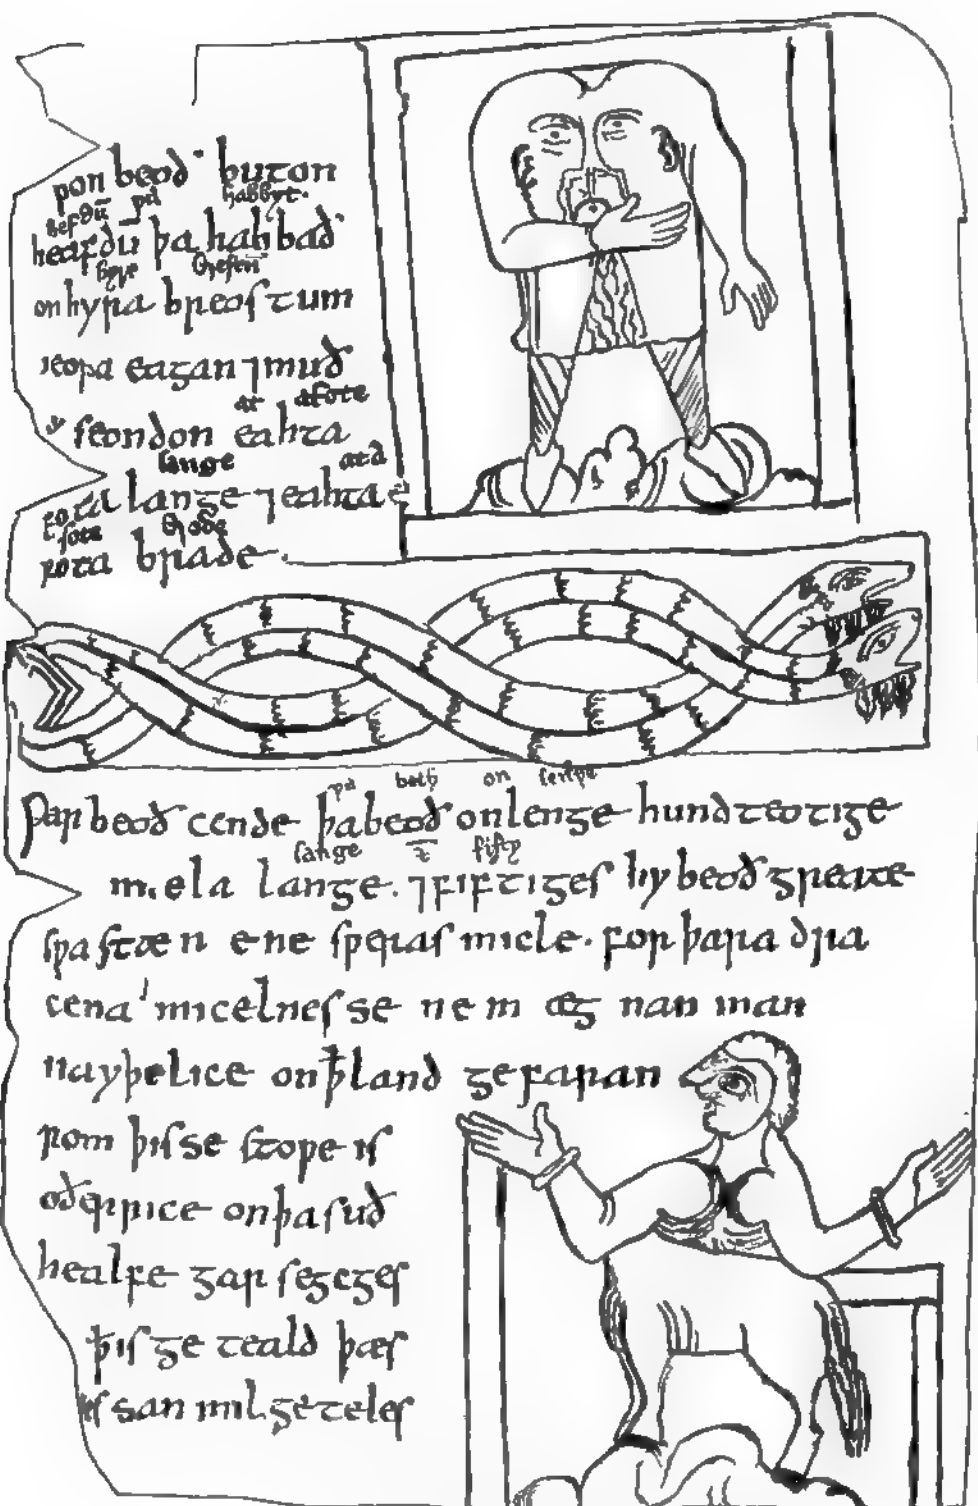 þon beoð· buton
hefdū þa habbyt·
heafdū þa habbað
hyre brestū
on hyra breostum
heora eagan ⁊ muð
at afote
seondon eahta
lange ata
fota lange ⁊ eahta
fote brode
fota brade.
þa beth on lenþe
Þar beoð cende þa beoð on lenge hundteotige
lange fifty
mela lange. ⁊ fiftiges hy beoð greate
swa stæn ene sweras micle. for þara dra
cena micelnesse ne mæg nan man
na yþelice on þ̄ land gefaran
rom þisse stope is
oðer rice on þa suð
healfe garsegcges
þ̄ is geteald þæs
es san mil geteles